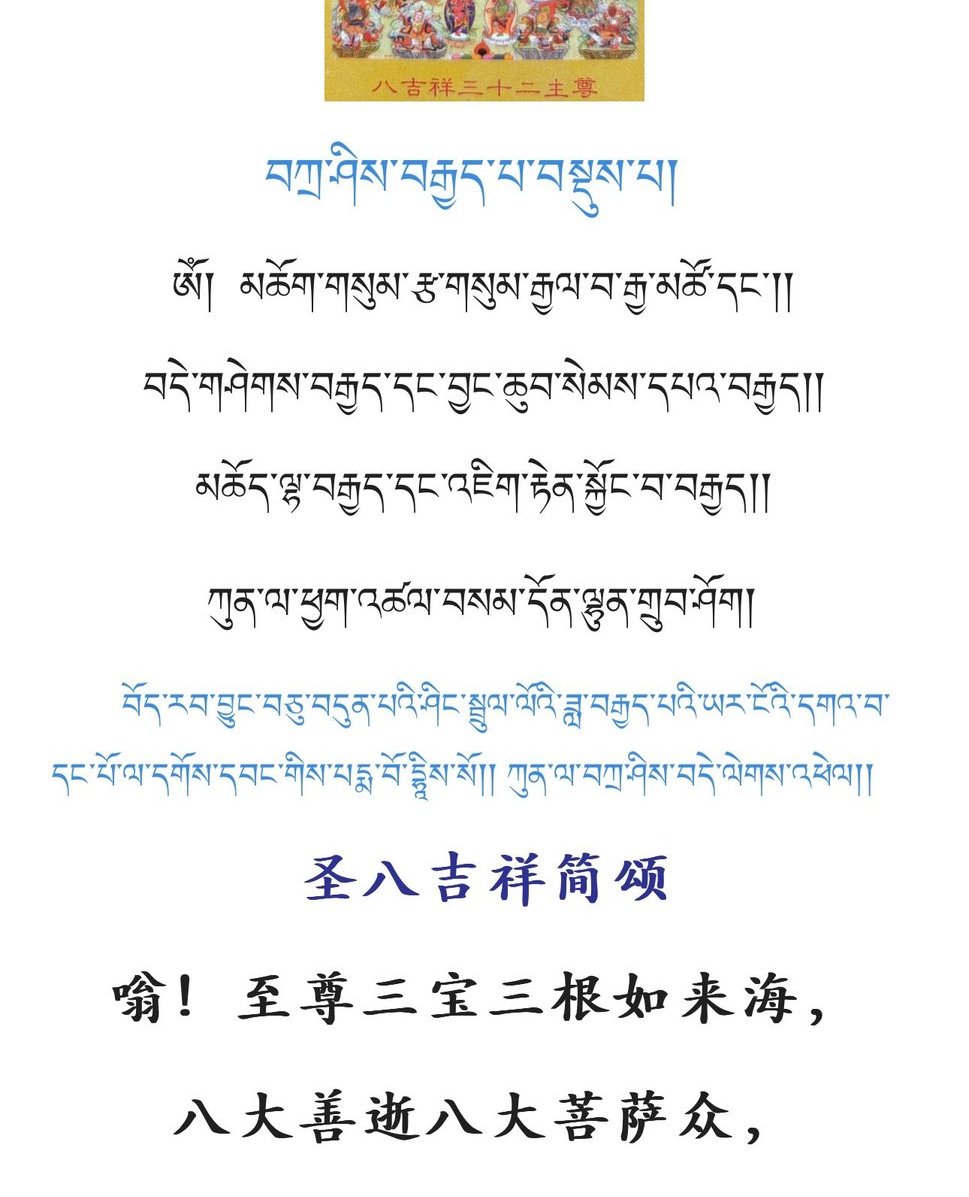 八吉祥三十二主尊
བཀྲ་ཤིས་བརྒྱད་པ་བསྡུས་པ།
ཨོཾ། མཆོག་གསུམ་རྩ་གསུམ་རྒྱལ་བ་རྒྱ་མཚོ་དང་།།
བདེ་གཤེགས་བརྒྱད་དང་བྱང་ཆུབ་སེམས་དཔའ་བརྒྱད།།
མཆོད་ལྷ་བརྒྱད་དང་འཇིག་རྟེན་སྐྱོང་བ་བརྒྱད།།
ཀུན་ལ་ཕྱག་འཚལ་བསམ་དོན་ལྷུན་གྲུབ་ཤོག།
བོད་རབ་བྱུང་བཅུ་བདུན་པའི་ཤིང་སྦྲུལ་ལོའི་ཟླ་བརྒྱད་པའི་ཡར་ངོའི་དགའ་བ་
དང་པོ་ལ་དགོས་དབང་གིས་པདྨ་བོ་དྷིས་སོ།། ཀུན་ལ་བཀྲ་ཤིས་བདེ་ལེགས་འཕེལ།།
圣八吉祥简颂
嗡！至尊三宝三根如来海，
八大善逝八大菩萨众，